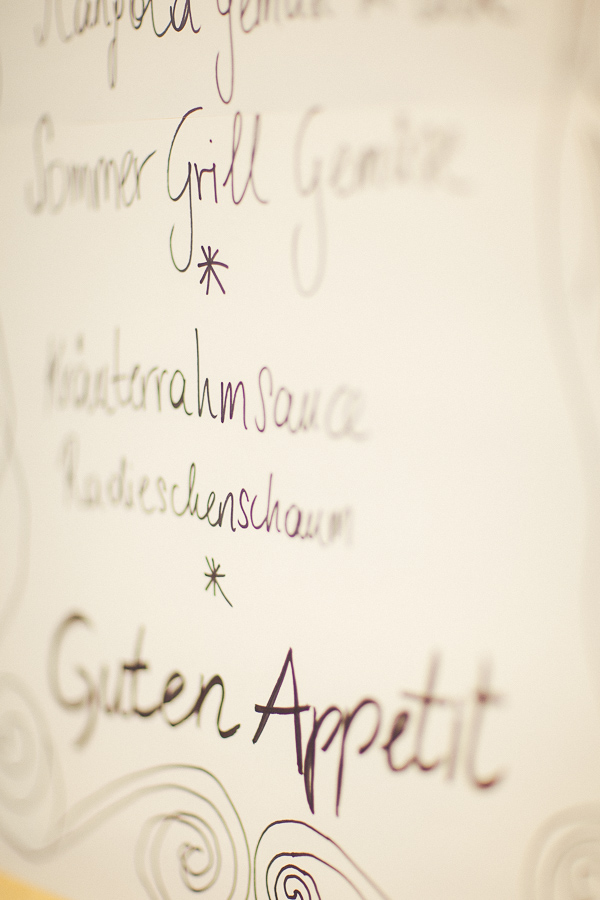 Mangold Gemüse
Sommer Grill Gemüse
*
Kräuterrahmsauce
Radieschenschaum
*
Guten Appetit